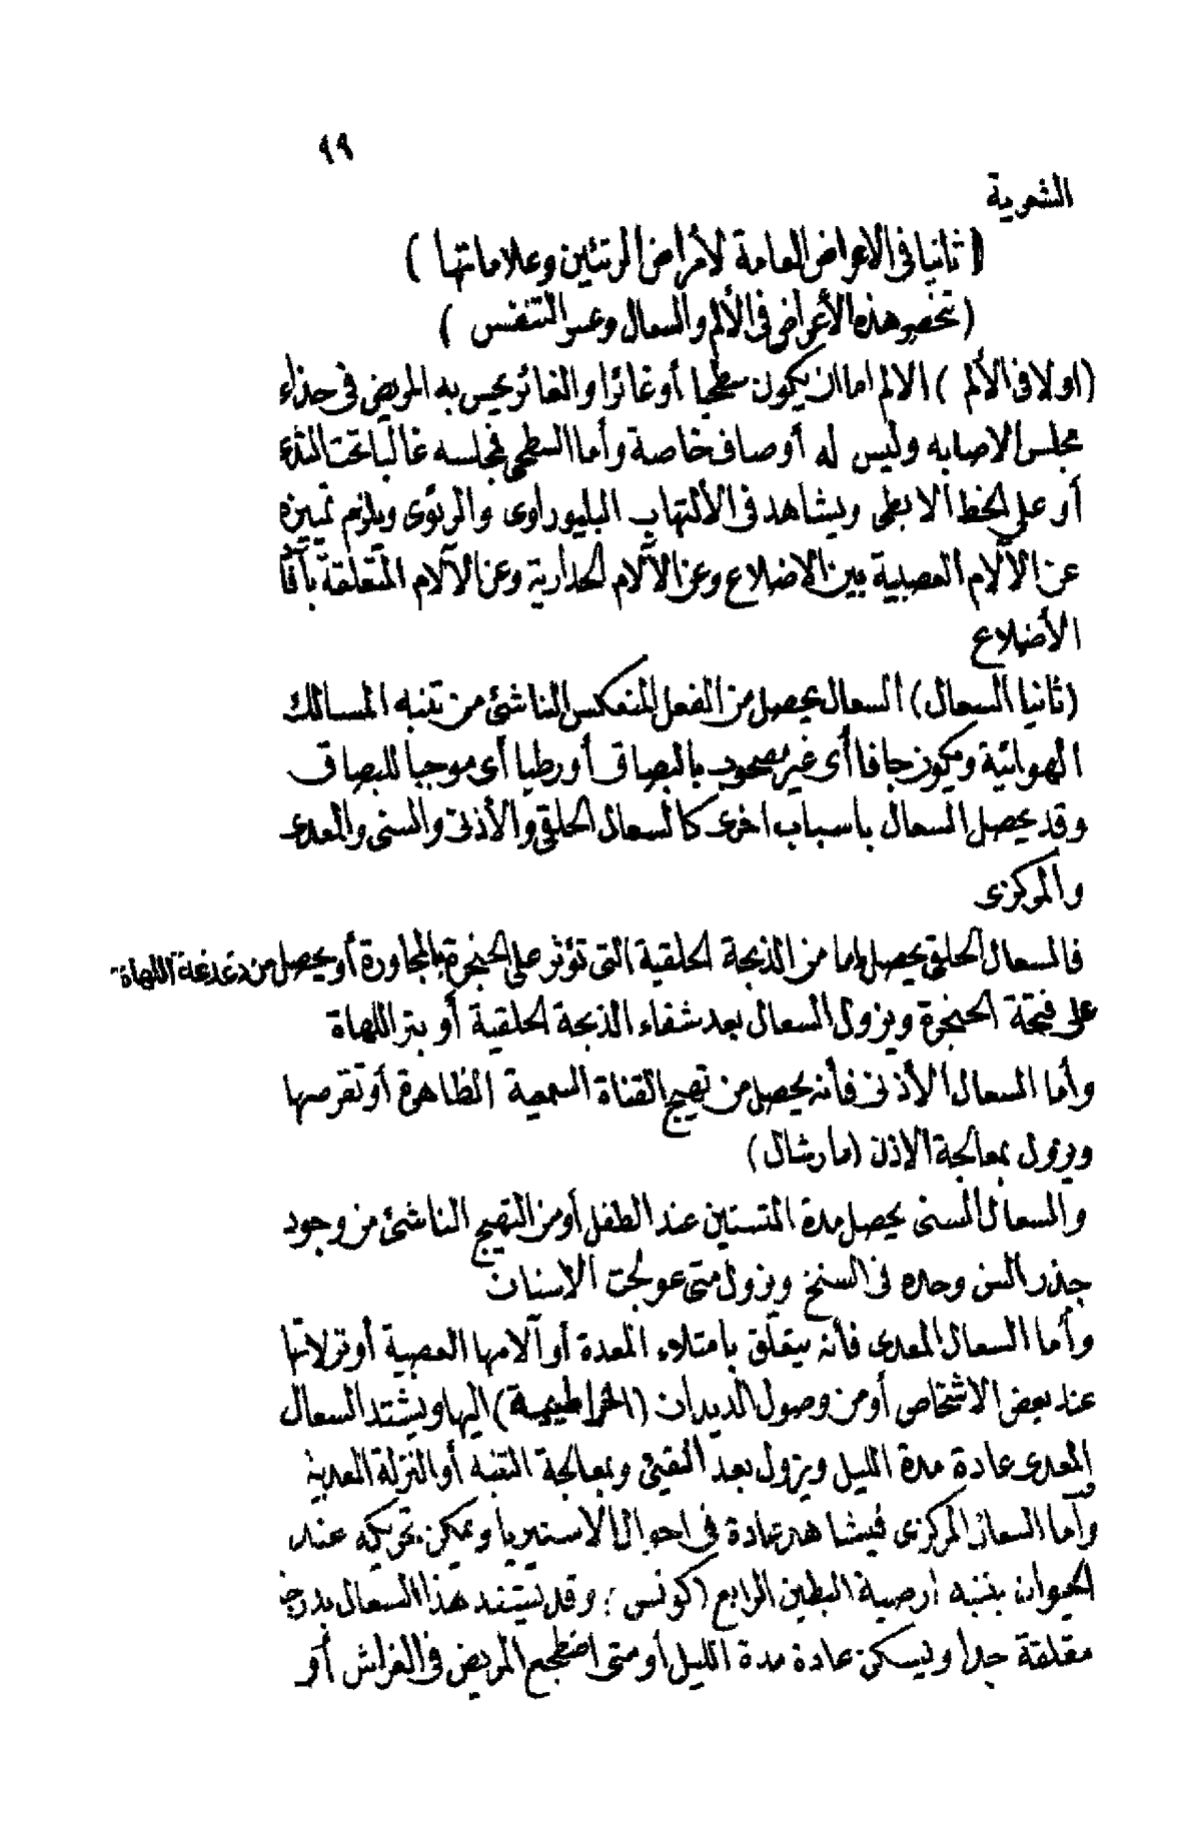 ٩٩
الشعرية
( ثانيا فى الاعراض العامة لأمراض الرئتين وعلاماتها )
( تنحصر هذه الأعراض فى الألم والسعال وعسر التنفس )
(اولا فى الألم ) الالم اما ان يكون سطحيا أو غائرا والغائر يحس به المريض فى حذاء
مجلس الاصابه وليس له أوصاف خاصة وأما السطحى فمجلسه غالبا تحت الثدى
أو على الخط الابطى ويشاهد فى الألتهاب البليوراوى والرئوى ويلزم تمييزه
عن الآلام العصبية بين الاضلاع وعن الآلام الحدارية وعن الآلام المتعلقة بآفات
الأضلاع
(ثانيا السعال) السعال يحصل من الفعل المنعكس الناشئ من تنبه المسالك
الهوائية ويكون جافا أى غير مصحوب بالبصاق أو رطبا أى موجبا للبصاق
وقد يحصل السعال باسباب اخرى كالسعال الحلقى والأذنى والسنى والمعدى
والمركزى
فالسعال الحلقى يحصل إما من الذبحة الحلقية التى تؤثر على الحنجرة بالمجاورة أو يحصل من دغدغة اللهاة
على فتحة الحنجرة ويزول السعال بعد شفاء الذبحة الحلقية أو بتر اللهاة
وأما السعال الأذنى فأنه يحصل من تهيج القناة السمعية الظاهرة أو تقرصها
ويزول بمعالجة الاذن (مارشال)
والسعال السنى يحصل مدة التسنين عند الطفل أو من التهيج الناشئ من وجود
جذر السن وحده فى السنخ ويزول متى عولجت الاسنان
وأما السعال المعدى فأنه يتعلق بامتلاء المعدة أو آلامها العصبية أو نزلاتها
عند بعض الاشخاص أو من وصول الديدان (الخراطيمية) اليها ويشتد السعال
المعدى عادة مدة الليل ويزول بعد القيئ وبمعالجة التنبه أو النزلة المعدية
وأما السعال المركزى فيشاهد عادة فى احوال الاستيريا ويمكن تحريكه عند
الحيوان بتنبه ارضية البطين الرابع (كونس) وقد يشتد هذا السعال بدرجة
مقلقة جدا ويسكن عادة مدة الليل أو متى اضطجع المريض فى الفراش أو